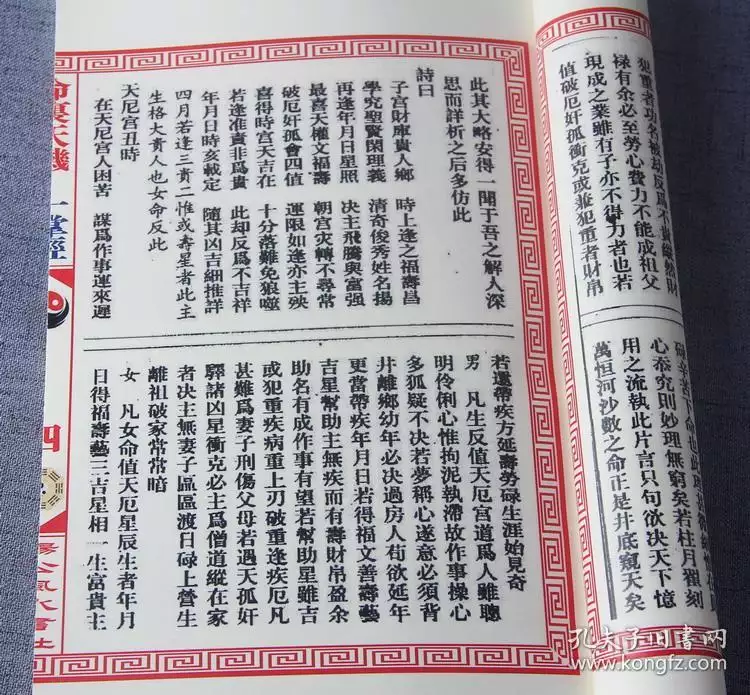 犯重者功名被劫反爲不貴縱然財
祿有余必至勞心費力不能成祖父
現成之業雖有子亦不得力者也若
值破厄奸孤衝克或兼犯重者財帛
碌辛苦下命也此
心泰究則妙理無窮矣若柱月翟刻
用之流執此片言只句欲決天下憶
萬恒河沙數之命正是井底窺天矣
此其大略安得一聞于吾之解人深
思而詳析之后多仿此
詩曰
子宫財庫貴人鄉 時上逢之福壽昌
學究聖賢閑理義 清奇俊秀姓名揚
再逢年月日星照 决主飛騰與富强
最喜天權文福壽 朝宫灾轉不尋常
破厄奸孤會四值 運限如逢亦主殃
喜得時宫天吉在 十分落難免狼噬
若逢准賣非爲貴 此却反爲不吉祥
年月日時亥載定 隨其凶吉細推詳
四月若逢三貴二惟或壽星者此主
生格大貴人也女命反此
天厄宫丑時
在天厄宫人困苦 謀爲作事運來遲
若還帶疾方延壽勞碌生涯始見奇
男 凡生反值天厄宫道爲人雖聰
明伶俐心惟拘泥執滯故作事操心
多狐疑不决若夢稱心遂意必須背
井離鄉幼年必决過房人苟欲延年
更當帶疾年月日若得福文善壽藝
吉星幫助主無疾而有壽財帛盈余
助名有成作事有望若幫助星雖吉
或犯重疾病重上刃破重逢疾厄凡
甚難爲妻子刑傷父母若過天孤奸
驛諸凶星衝克必主爲僧道縱在家
者决主無妻子區區渡日碌上營生
離祖破家常常暗
女 凡女命值天厄星辰生者年月
日得福壽藝三吉星相一生富貴主
命裏天機
一掌經
四
孔夫子旧书网
www.kongfz.com